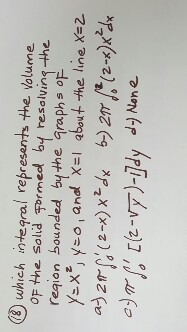 (18) which integral represents the volume
of the solid formed by resolving the
region bounded by the graphs of
y=x², y=0, and x=1 about the line x=2
a-) 2π∫₀¹(2-x)x²dx b-) 2π∫₀²(2-x)x²dx
c-) π∫₀¹[(2-√y)-1]dy d-) None